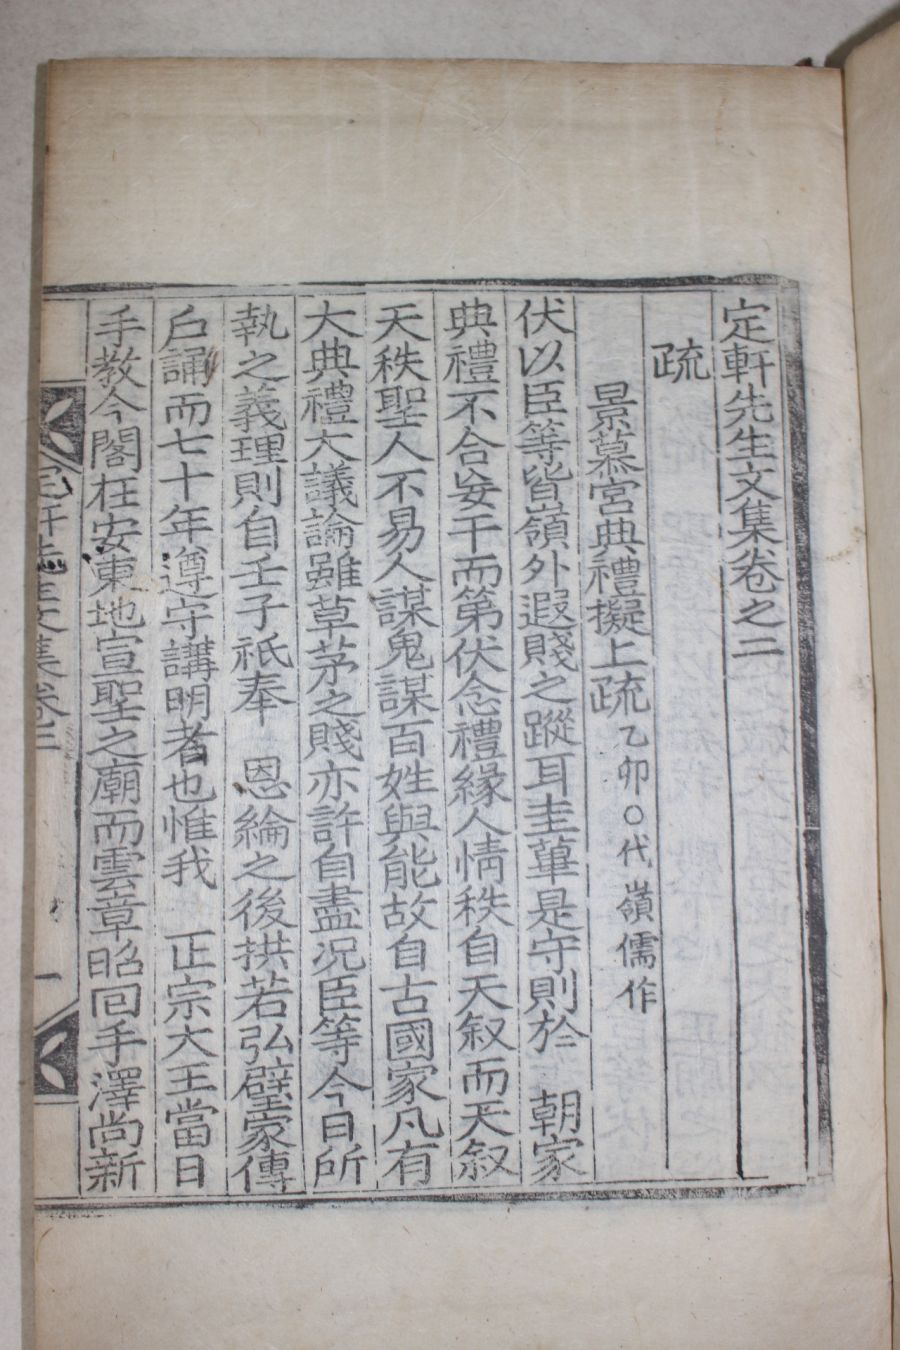 定軒先生文集卷之二
疏
景慕宮典禮擬上疏乙卯○代嶺儒作
伏以臣等皆嶺外遐賤之蹤耳圭蓽是守則於 朝家
典禮不合妄干而第伏念禮緣人情秩自天叙而天叙
天秩聖人不易人謀鬼謀百姓與能故自古國家凡有
大典禮大議論雖草茅之賤亦許自盡况臣等今日所
執之義理則自壬子祇奉 恩綸之後拱若弘璧家傳
戶誦而七十年遵守講明者也惟我 正宗大王當日
手教今閣在安東地宣聖之廟而雲章昭回手澤尚新
定軒先生文集卷二
一